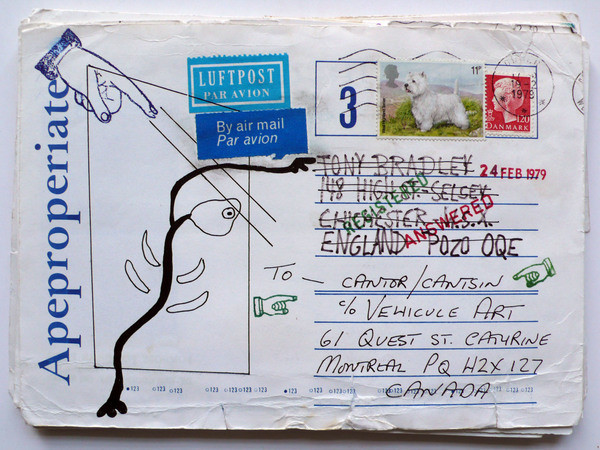 Apeproperiate
LUFTPOST
PAR AVION
By air mail
Par avion
3
11P
1978
120
DANMARK
TONY BRADLEY
24 FEB 1979
148 HIGH ST. SELSEY
REGISTERED
CHICHESTER
ANSWERED
ENGLAND PO20 0QE
TO — CANTOR/CANTSIN
c/o VEHICULE ART
61 QUEST ST. CATHRINE
MONTREAL PQ H2X 1Z7
CANADA
123 123 123 123 123 123 123 123 123